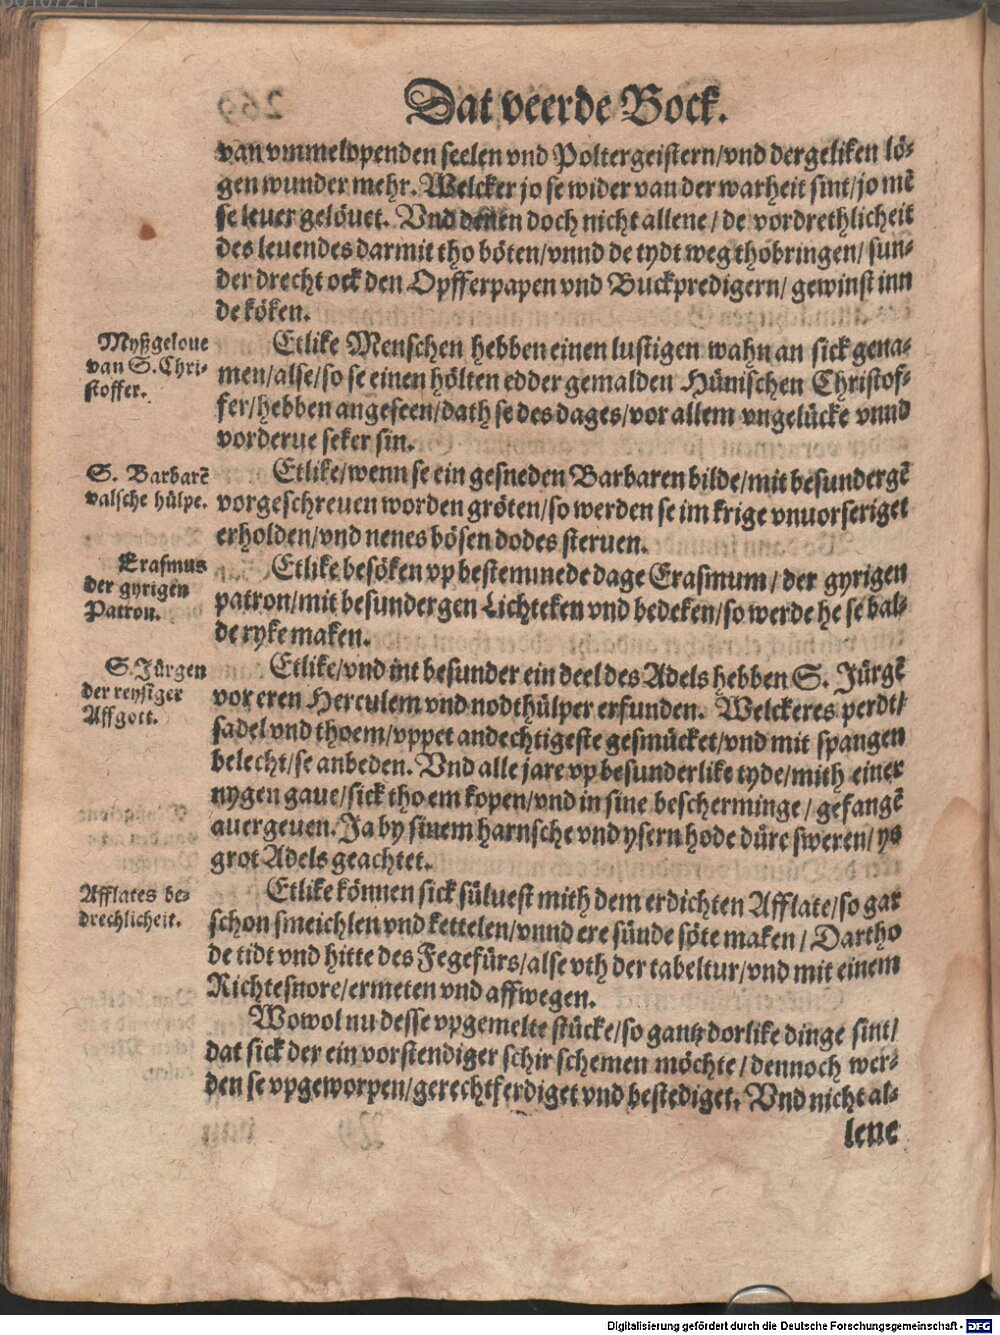 Dat veerde Bock.
van vmmelopenden seelen vnd Poltergeistern/vnd dergeliken lö⸗
gen wunder mehr. Welcker jo se wider van der warheit sint/jo mē
se leuer gelöuet. Vnd denen doch nicht allene/ de vordrethlicheit
des leuendes darmit tho böten/vnnd de tydt weg thobringen/ sun⸗
der drecht ock den Opfferpapen vnd Buckpredigern/ gewinst inn
de köken.
Myßgeloue
van S. Chri⸗
stoffer.
Etlike Menschen hebben einen lustigen wahn an sick gena⸗
men/alse/so se einen hölten edder gemalden Hünischen Christof⸗
fer/hebben angeseen/dath se des dages/vor allem vngelücke vnnd
vorderue seker sin.
S. Barbarē
valsche hülpe.
Etlike/wenn se ein gesneden Barbaren bilde/mit besundergē
vorgeschreuen worden gröten/so werden se im krige vnuorseriget
erholden/vnd nenes bösen dodes steruen.
Erasmus
der gyrigen
Patron.
Etlike besöken vp bestemmede dage Erasmum/ der gyrigen
patron/mit besundergen Lichteken vnd bedeken/so werde he se bal⸗
de ryke maken.
S. Jürgen
der reysiger
Affgott.
Etlike/vnd int besunder ein deel des Adels hebben S. Jürgē
vor eren Herculem vnd nodthülper erfunden. Welckeres perdt/
sadel vnd thoem/vppet andechtigeste gesmücket/vnd mit spangen
belecht/se anbeden. Vnd alle jare vp besunderlike tyde/mith einer
nygen gaue/sick tho em kopen/vnd in sine bescherminge/ gefangē
auergeuen. Ja by sinem harnsche vnd ysern hode düre sweren/ ys
grot Adels geachtet.
Afflates be⸗
drechlicheit.
Etlike können sick süluest mith dem erdichten Afflate/so gar
schon smeichlen vnd kettelen/vnnd ere sünde söte maken/ Dartho
de tidt vnd hitte des Fegefürs/alse vth der tabeltur/vnd mit einem
Richtesnore/ermeten vnd affwegen.
Wowol nu desse vpgemelte stücke/so gantz dorlike dinge sint/
dat sick der ein vorstendiger schir schemen möchte/ dennoch wer⸗
den se vpgeworpen/gerechtferdiget vnd bestediget. Vnd nicht al⸗
lene
Digitalisierung gefördert durch die Deutsche Forschungsgemeinschaft - DFG